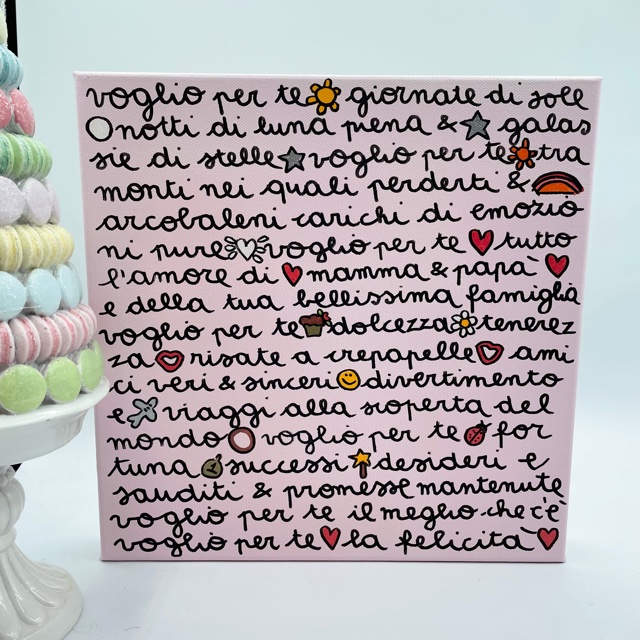 voglio per te giornate di sole
notti di luna piena & galas
sie di stelle voglio per te tra
monti nei quali perderti &
arcobaleni carichi di emozio
ni pure voglio per te tutto
l'amore di mamma & papà
e della tua bellissima famiglia
voglio per te dolcezza tenerez
za risate a crepapelle ami
ci veri & sinceri divertimento
e viaggi alla scoperta del
mondo voglio per te for
tuna successi desideri e
sauditi & promesse mantenute
voglio per te il meglio che c'è
voglio per te la felicità